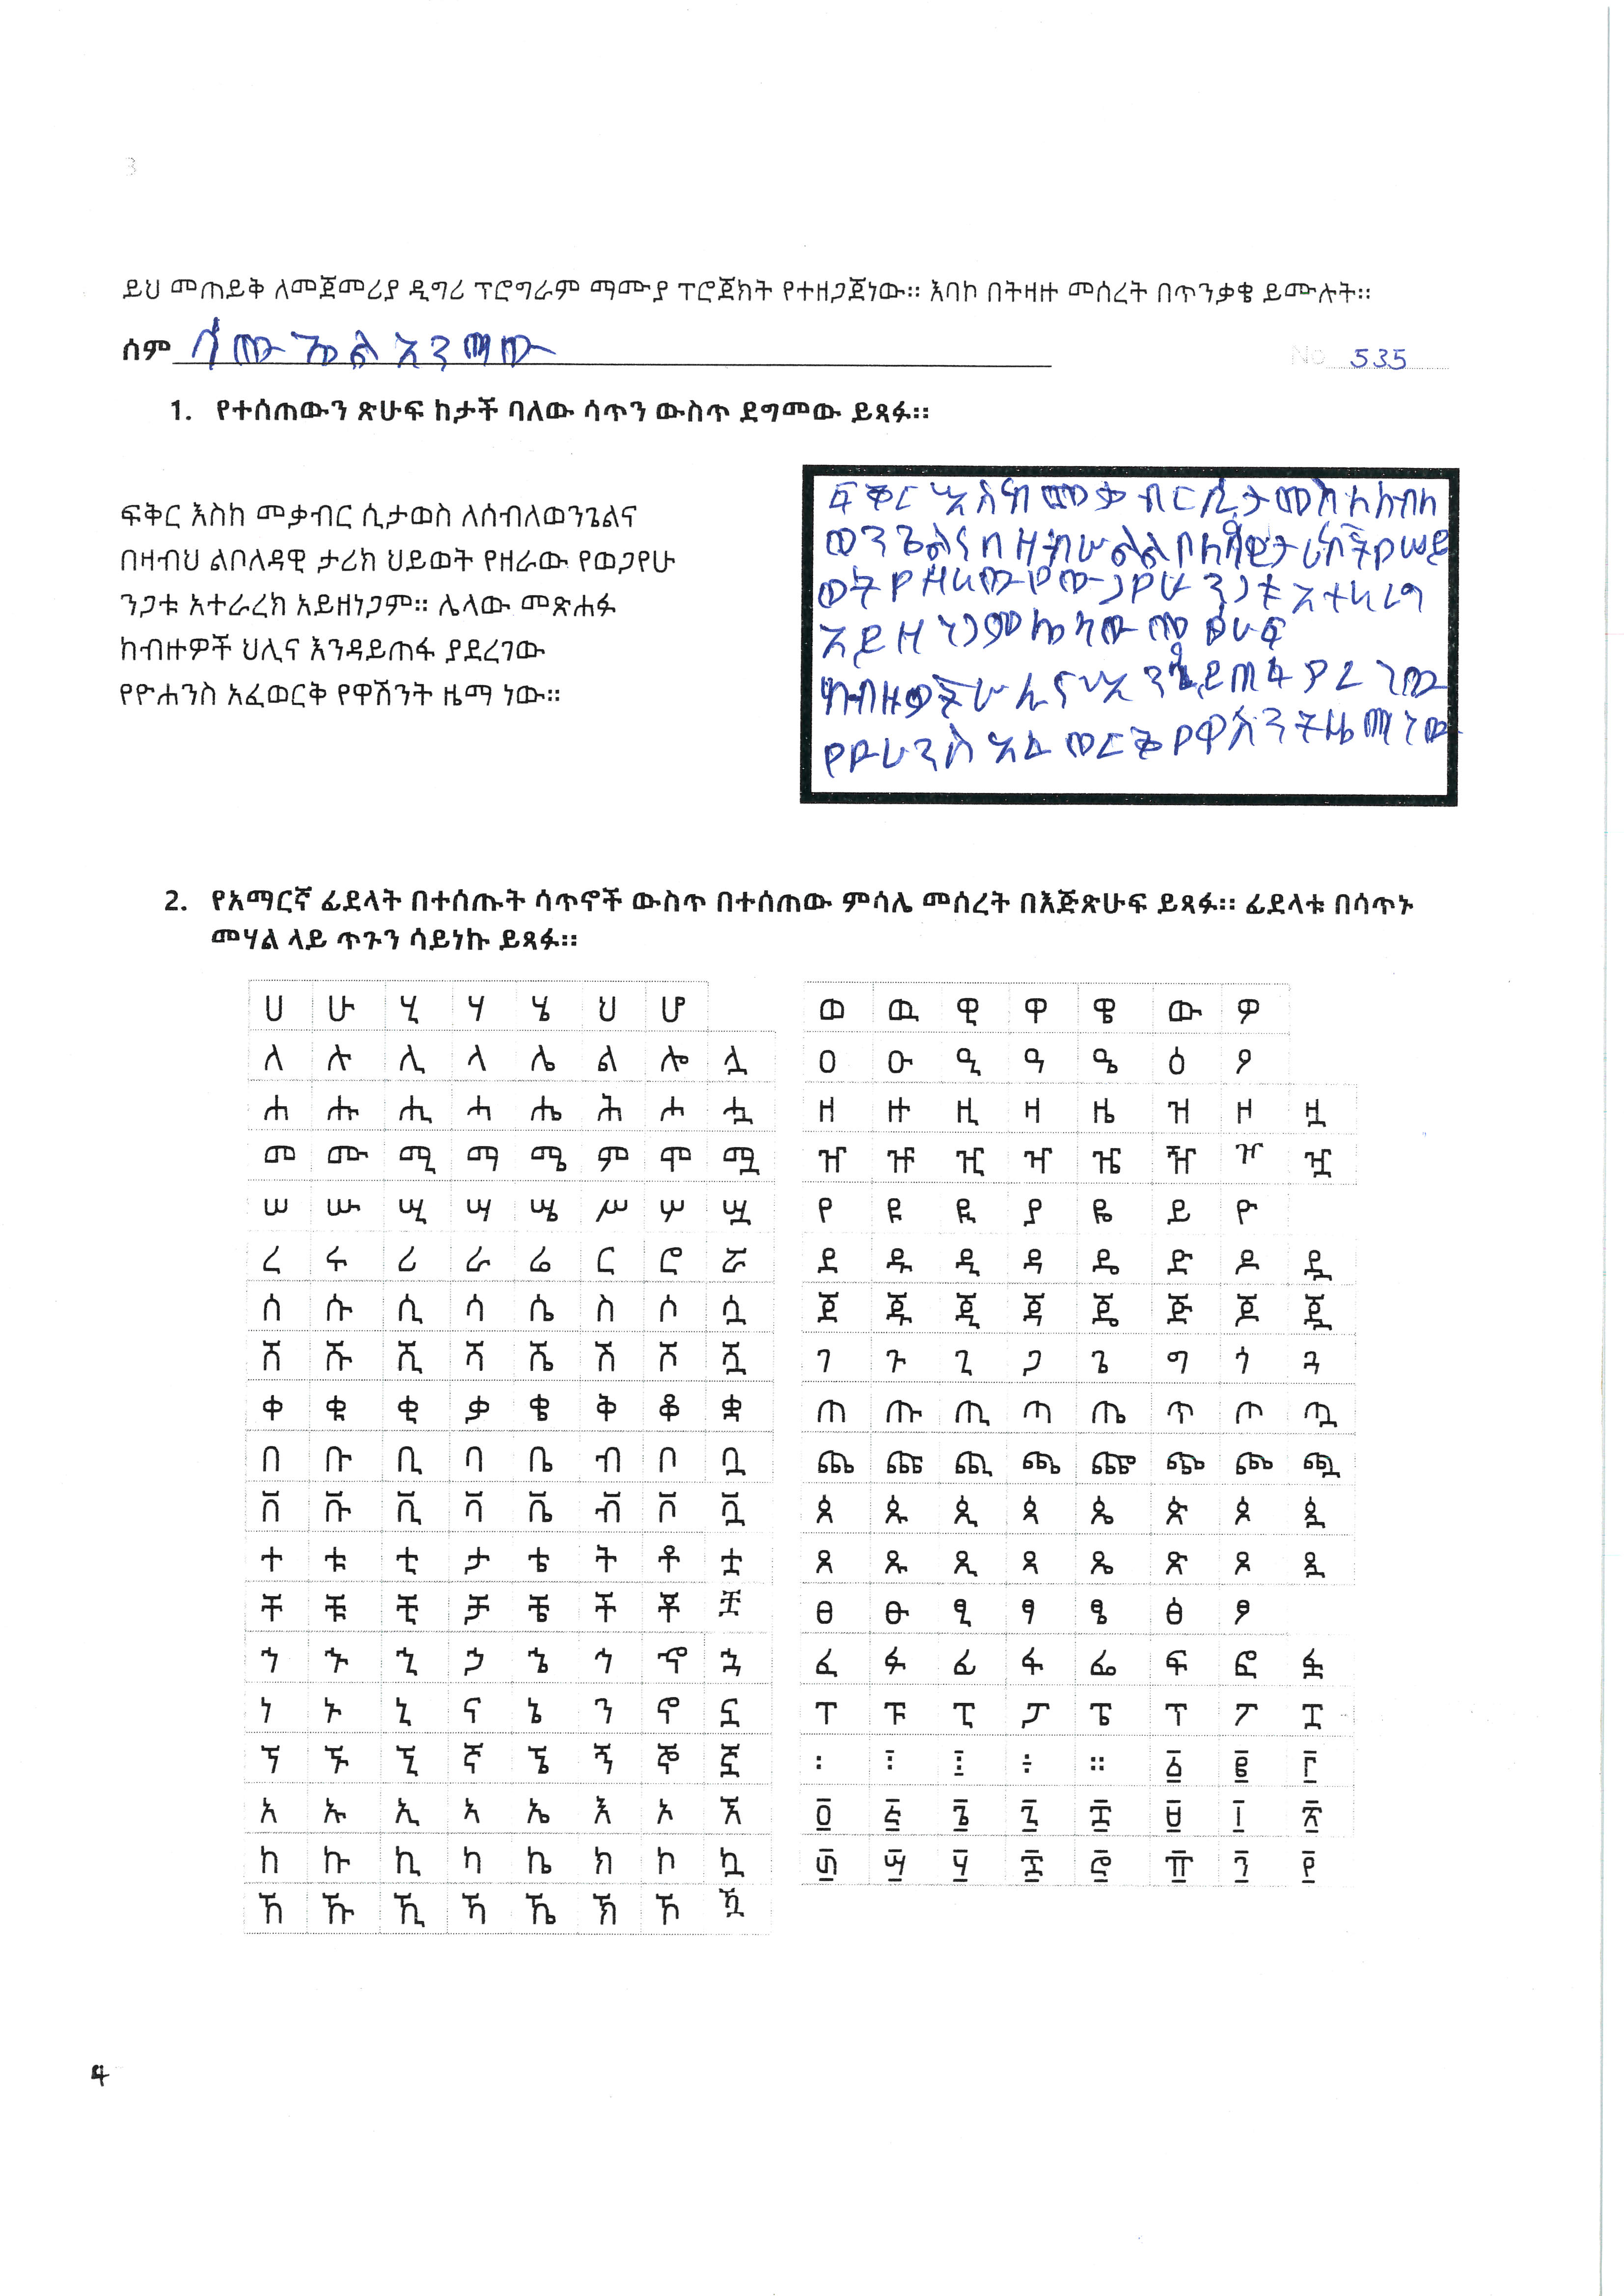 3
ይህ መጠይቅ ለመጀመሪያ ዲግሪ ፕሮግራም ማሙያ ፕሮጀክት የተዘጋጀነው። እባኮ በትዛዙ መሰረት በጥንቃቄ ይሙሉት።
ስም ሳሙኤል አንማው
No 535
1. የተሰጠውን ጽሁፍ ከታች ባለው ሳጥን ውስጥ ደግመው ይጻፉ።
ፍቅር እስከ መቃብር ሲታወስ ለሰብለወንጌልና
በዛብህ ልቦለዳዊ ታሪክ ህይወት የዘራው የወጋየሁ
ንጋቱ አተራረክ አይዘነጋም። ሌላው መጽሐፉ
ከብዙዎች ህሊና እንዳይጠፋ ያደረገው
የዮሐንስ አፈወርቅ የዋሽንት ዜማ ነው።
ፍቅር እስከ መቃብር ሲታመስ
ወንጌልና
ወት የዘራው የውጋየሁ ንጋቱ
አይዘነጋም ሌላው
ከብዙዎች
አፈወርቅ የዋሽንት ዜማ ነው
2. የአማርኛ ፊደላት በተሰጡት ሳጥኖች ውስጥ በተሰጠው ምሳሌ መሰረት በእጅጽሁፍ ይጻፉ። ፊደላቱ በሳጥኑ
መሃል ላይ ጥጉን ሳይነኩ ይጻፉ።
ሀ ሁ ሂ ሃ ሄ ህ ሆ
ለ ሉ ሊ ላ ሌ ል ሎ ሏ
ሐ ሑ ሒ ሓ ሔ ሕ ሖ ሗ
መ ሙ ሚ ማ ሜ ም ሞ ሟ
ሠ ሡ ሢ ሣ ሤ ሥ ሦ ሧ
ረ ሩ ሪ ራ ሬ ር ሮ ሯ
ሰ ሱ ሲ ሳ ሴ ስ ሶ ሷ
ሸ ሹ ሺ ሻ ሼ ሽ ሾ ሿ
ቀ ቁ ቂ ቃ ቄ ቅ ቆ ቋ
በ ቡ ቢ ባ ቤ ብ ቦ ቧ
ቨ ቩ ቪ ቫ ቬ ቭ ቮ ቯ
ተ ቱ ቲ ታ ቴ ት ቶ ቷ
ቸ ቹ ቺ ቻ ቼ ች ቾ ቿ
ኀ ኁ ኂ ኃ ኄ ኅ ኆ ኋ
ነ ኑ ኒ ና ኔ ን ኖ ኗ
ኘ ኙ ኚ ኛ ኜ ኝ ኞ ኟ
አ ኡ ኢ ኣ ኤ እ ኦ ኧ
ከ ኩ ኪ ካ ኬ ክ ኮ ኳ
ኸ ኹ ኺ ኻ ኼ ኽ ኾ ዃ
ወ ዉ ዊ ዋ ዌ ው ዎ
ዐ ዑ ዒ ዓ ዔ ዕ ዖ
ዘ ዙ ዚ ዛ ዜ ዝ ዞ ዟ
ዠ ዡ ዢ ዣ ዤ ዥ ዦ ዧ
የ ዩ ዪ ያ ዬ ይ ዮ
ደ ዱ ዲ ዳ ዴ ድ ዶ ዷ
ጀ ጁ ጂ ጃ ጄ ጅ ጆ ጇ
ገ ጉ ጊ ጋ ጌ ግ ጎ ጓ
ጠ ጡ ጢ ጣ ጤ ጥ ጦ ጧ
ጨ ጩ ጪ ጫ ጬ ጭ ጮ ጯ
ጰ ጱ ጲ ጳ ጴ ጵ ጶ ጷ
ጸ ጹ ጺ ጻ ጼ ጽ ጾ ጿ
ፀ ፁ ፂ ፃ ፄ ፅ ፆ
ፈ ፉ ፊ ፋ ፌ ፍ ፎ ፏ
ፐ ፑ ፒ ፓ ፔ ፕ ፖ ፗ
፡ ፣ ፤ ÷ ። ፩ ፪ ፫
፬ ፭ ፮ ፯ ፰ ፱ ፲ ፳
፴ ፵ ፶ ፷ ፸ ፹ ፺ ፻
4